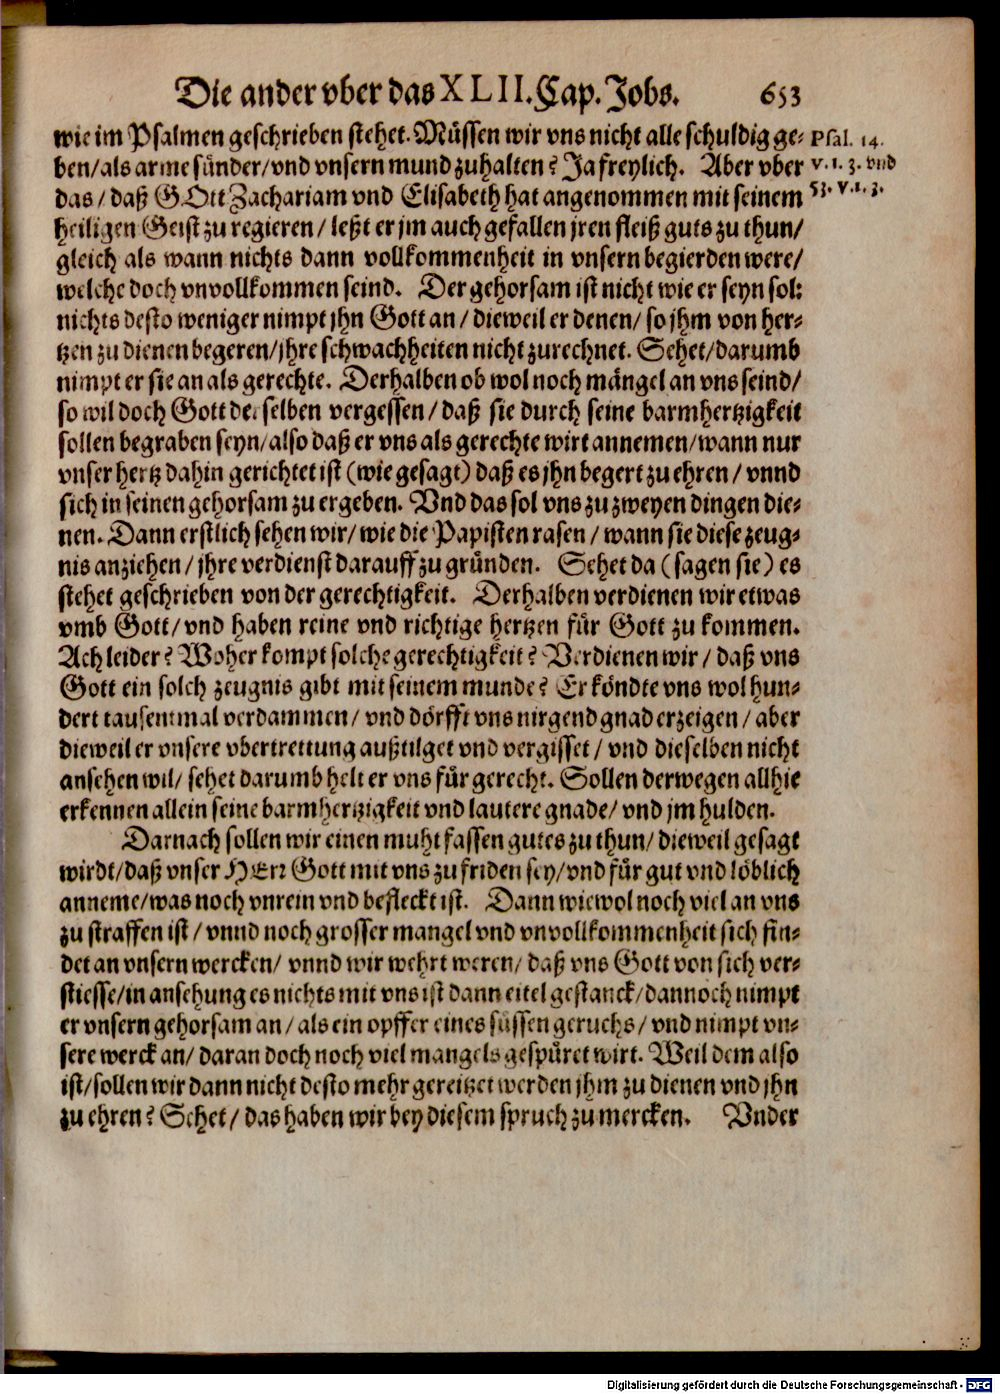 Die ander vber das XLII. Cap. Jobs. 653
wie im Psalmen geschrieben stehet. Müssen wir vns nicht alle schuldig ge-
ben/als arme sünder/vnd vnsern mund zuhalten? Ja freylich. Aber vber
das/ daß GOtt Zachariam vnd Elisabeth hat angenommen mit seinem
heiligen Geist zu regieren/ leßt er jm auch gefallen jren fleiß guts zu thun/
gleich als wann nichts dann vollkommenheit in vnsern begierden were/
welche doch vnvollkommen seind. Der gehorsam ist nicht wie er seyn sol:
nichts desto weniger nimpt jhn Gott an/ dieweil er denen/ so jhm von her-
tzen zu dienen begeren/jhre schwachheiten nicht zurechnet. Sehet/darumb
nimpt er sie an als gerechte. Derhalben ob wol noch mängel an vns seind/
so wil doch Gott derselben vergessen/ daß sie durch seine barmhertzigkeit
sollen begraben seyn/also daß er vns als gerechte wirt annemen/wann nur
vnser hertz dahin gerichtet ist (wie gesagt) daß es jhn begert zu ehren/ vnnd
sich in seinen gehorsam zu ergeben. Vnd das sol vns zu zweyen dingen die-
nen. Dann erstlich sehen wir/ wie die Papisten rasen/ wann sie diese zeug-
nis anziehen/ jhre verdienst darauff zu gründen. Sehet da (sagen sie) es
stehet geschrieben von der gerechtigkeit. Derhalben verdienen wir etwas
vmb Gott/ vnd haben reine vnd richtige hertzen für Gott zu kommen.
Ach leider? Woher kompt solche gerechtigkeit? Verdienen wir/ daß vns
Gott ein solch zeugnis gibt mit seinem munde? Er köndte vns wol hun-
dert tausentmal verdammen/ vnd dörfft vns nirgend gnad erzeigen/ aber
dieweil er vnsere vbertrettung außtilget vnd vergisset/ vnd dieselben nicht
ansehen wil/ sehet darumb helt er vns für gerecht. Sollen derwegen allhie
erkennen allein seine barmhertzigkeit vnd lautere gnade/ vnd jm hulden.
Darnach sollen wir einen muht fassen gutes zu thun/ dieweil gesagt
wirdt/daß vnser HErr Gott mit vns zu friden sey/vnd für gut vnd löblich
anneme/was noch vnrein vnd befleckt ist. Dann wiewol noch viel an vns
zu straffen ist/ vnnd noch grosser mangel vnd vnvollkommenheit sich fin-
det an vnsern wercken/ vnnd wir wehrt weren/ daß vns Gott von sich ver-
stiesse/in ansehung es nichts mit vns ist dann eitel gestanck/dannoch nimpt
er vnsern gehorsam an/ als ein opffer eines süssen geruchs/ vnd nimpt vn-
sere werck an/ daran doch noch viel mangels gespüret wirt. Weil dem also
ist/sollen wir dann nicht desto mehr gereitzet werden jhm zu dienen vnd jhn
zu ehren? Sehet/ das haben wir bey diesem spruch zu mercken. Vnder
Psal. 14.
v. 1. 3. vnd
53. v. 2. 3.
Digitalisierung gefördert durch die Deutsche Forschungsgemeinschaft - DFG